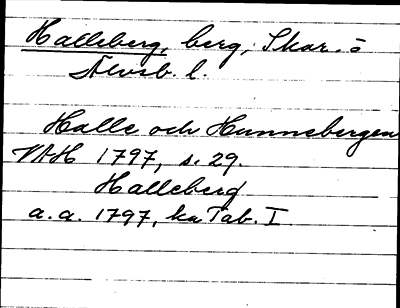 Halleberg, berg, Skar. ö
Älvsb. l.
Halle och Hunnebergen
VAH 1797, s. 29.
Halleberg
a. a. 1797, ka Tab. I